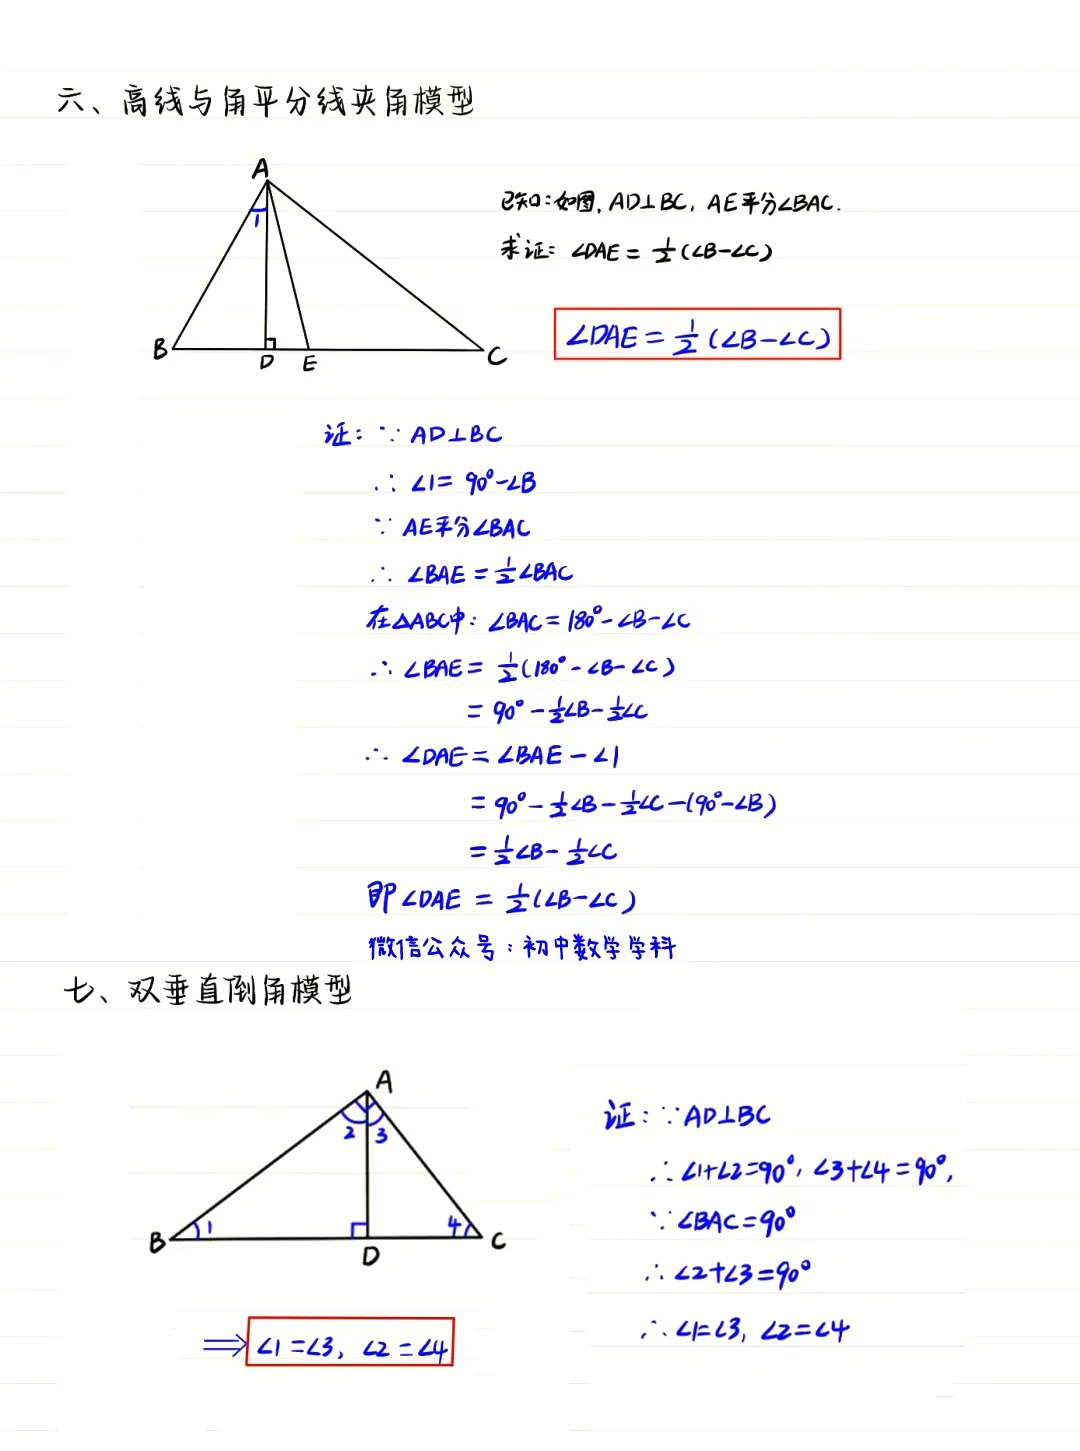 六、高线与角平分线夹角模型
A
1
B
D
E
C
已知:如图, AD⊥BC, AE平分∠BAC.
求证: ∠DAE = 1/2(∠B-∠C)
∠DAE = 1/2(∠B-∠C)
证: ∵ AD⊥BC
∴ ∠1= 90°-∠B
∵ AE平分∠BAC
∴ ∠BAE = 1/2∠BAC
在△ABC中: ∠BAC = 180°-∠B-∠C
∴ ∠BAE = 1/2(180°-∠B-∠C)
= 90°-1/2∠B-1/2∠C
∴ ∠DAE = ∠BAE-∠1
= 90°-1/2∠B-1/2∠C-(90°-∠B)
= 1/2∠B-1/2∠C
即∠DAE = 1/2(∠B-∠C)
微信公众号:初中数学学科
七、双垂直倒角模型
A
2 3
B 1
4 C
D
⇒ ∠1=∠3, ∠2=∠4
证: ∵AD⊥BC
∴∠1+∠2=90°, ∠3+∠4=90°,
∵∠BAC=90°
∴∠2+∠3=90°
∴∠1=∠3, ∠2=∠4